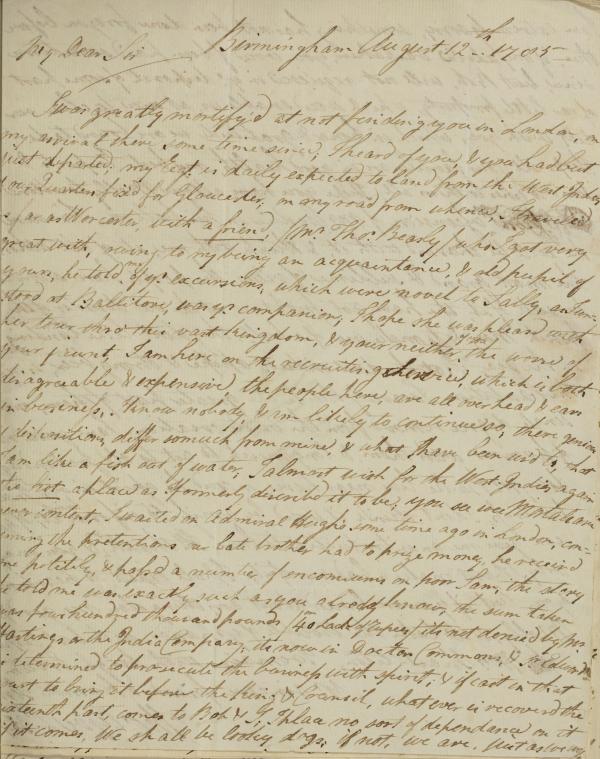 My Dear Sir Birmingham August 12th 1785
I was greatly mortify'd at not finding you in London, on
my arrival there some time since, I heard of you, & you had but
just departed, my Regt. is daily expected to land from the West Indies
our Quarters fixed for Gloucester, on my road from whence I travel'd
as far as Worcester, with a friend, (Mr Thos. Bearly) who got very
great with, owing to my being an acquaintance, & old pupil of
yours, he told of yr. excursions, which were novel to Sally, as I un-
stood at Ballitore, was yr. companion, I hope she was pleased with
her tour thro' this vast kingdom, & your neither of ym. the worse of
your jaunt, I am here on the recruiting service, which is both
disagreable & expensive, the people here, are all over head & ears
in business, I know nobody, & am likely to continue so, there genius
& dispositions differ so much from mine, & what I have been us'd to, that
I am like a fish out of water, I almost wish for the West Indies again
the first a place as I formerly discribed it to be, you see we Mortals are
never content, I waited on Admiral Hughs some time ago in London, con-
cerning the pretentions our late brother had to prize money, he receivd
me politely, & pass'd a number of encomiums on poor Sam, the story
he told me was exactly such as you already know, the sum taken
was four hundred thousand pounds (40 Lacks of rupees) its not denied by Mr
Hastings or the India Company, its now in Doctors Commons, & Sr Edward
is determined to prosecute the business with spirit, & if cast in that
court to bring it before the King & Council, what ever is recoverd the
sixteenth part, comes to Bob & I, I place no sort of dependance on it
if it comes, We shall be lucky dogs, if not, we are just as we were